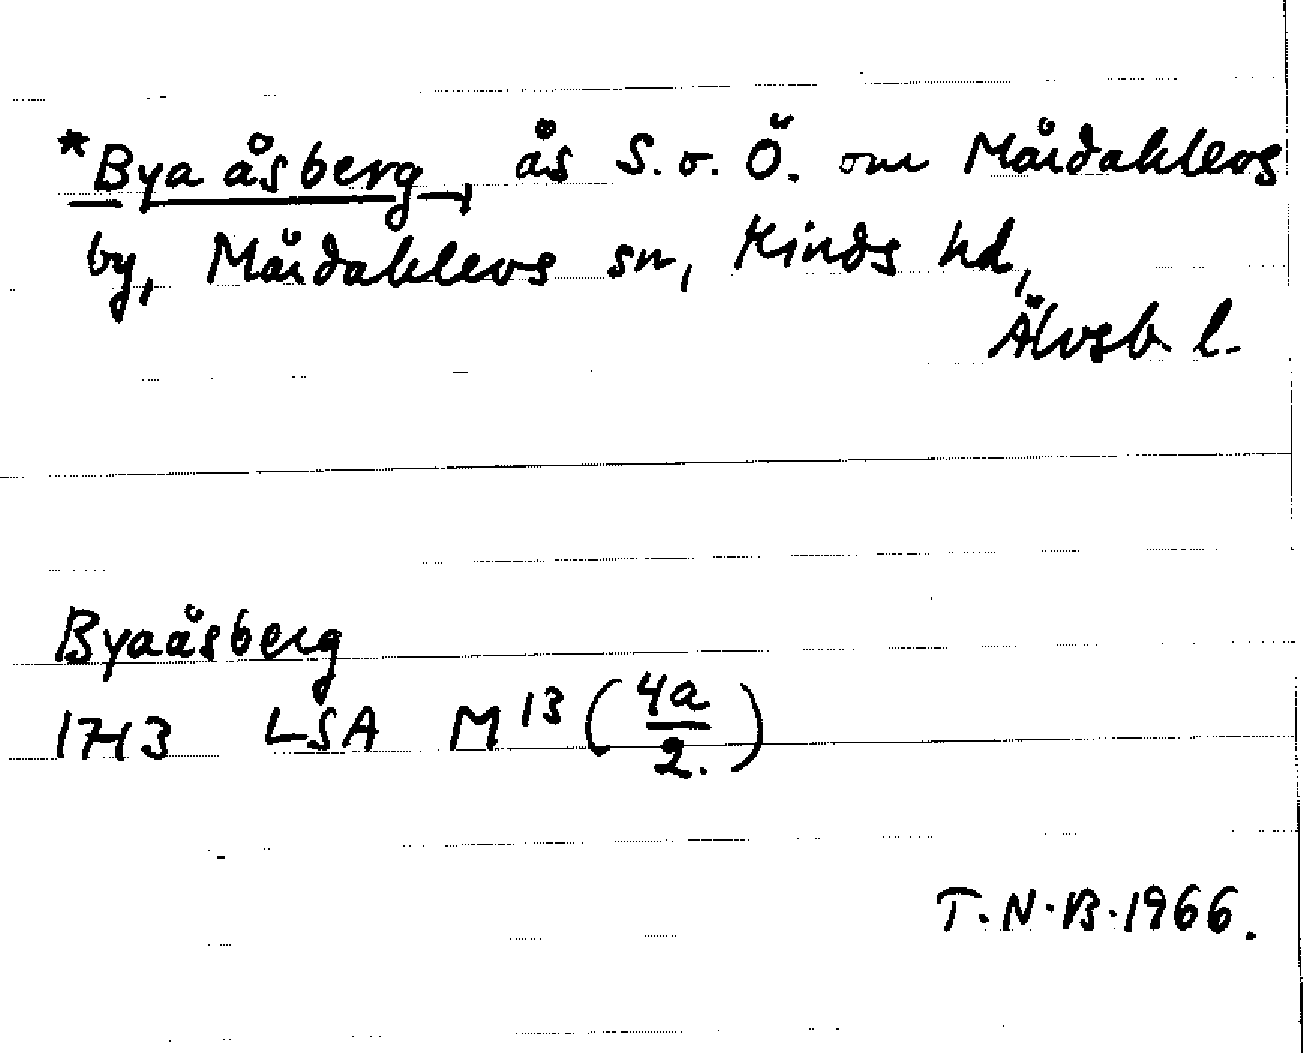 *Bya åsberg, ås S. o. Ö. om Mårdaklevs
by, Mårdaklevs sn, Kinds hd,
Älvsb l.
Byaåsberg
1743 LSA M 13 (4a/2.)
T.N.B. 1966.